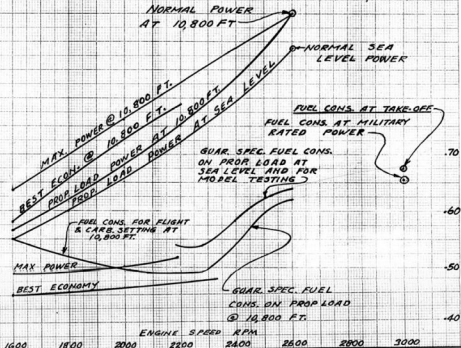 NORMAL POWER
AT 10,800 FT
NORMAL SEA
LEVEL POWER
MAX. POWER @ 10,800 FT.
BEST ECON. @ 10,800 FT.
PROP. LOAD POWER AT 10,800 FT.
PROP. LOAD POWER AT SEA LEVEL
FUEL CONS. AT TAKE-OFF
FUEL CONS. AT MILITARY
RATED POWER
GUAR. SPEC. FUEL CONS.
ON PROP. LOAD AT
SEA LEVEL AND FOR
MODEL TESTING
.70
.60
FUEL CONS. FOR FLIGHT
& CARB. SETTING AT
10,800 FT.
MAX POWER
.50
BEST ECONOMY
GUAR. SPEC. FUEL
CONS. ON PROP LOAD
@ 10,800 FT.
.40
ENGINE SPEED RPM
1600 1800 2000 2200 2400 2600 3000